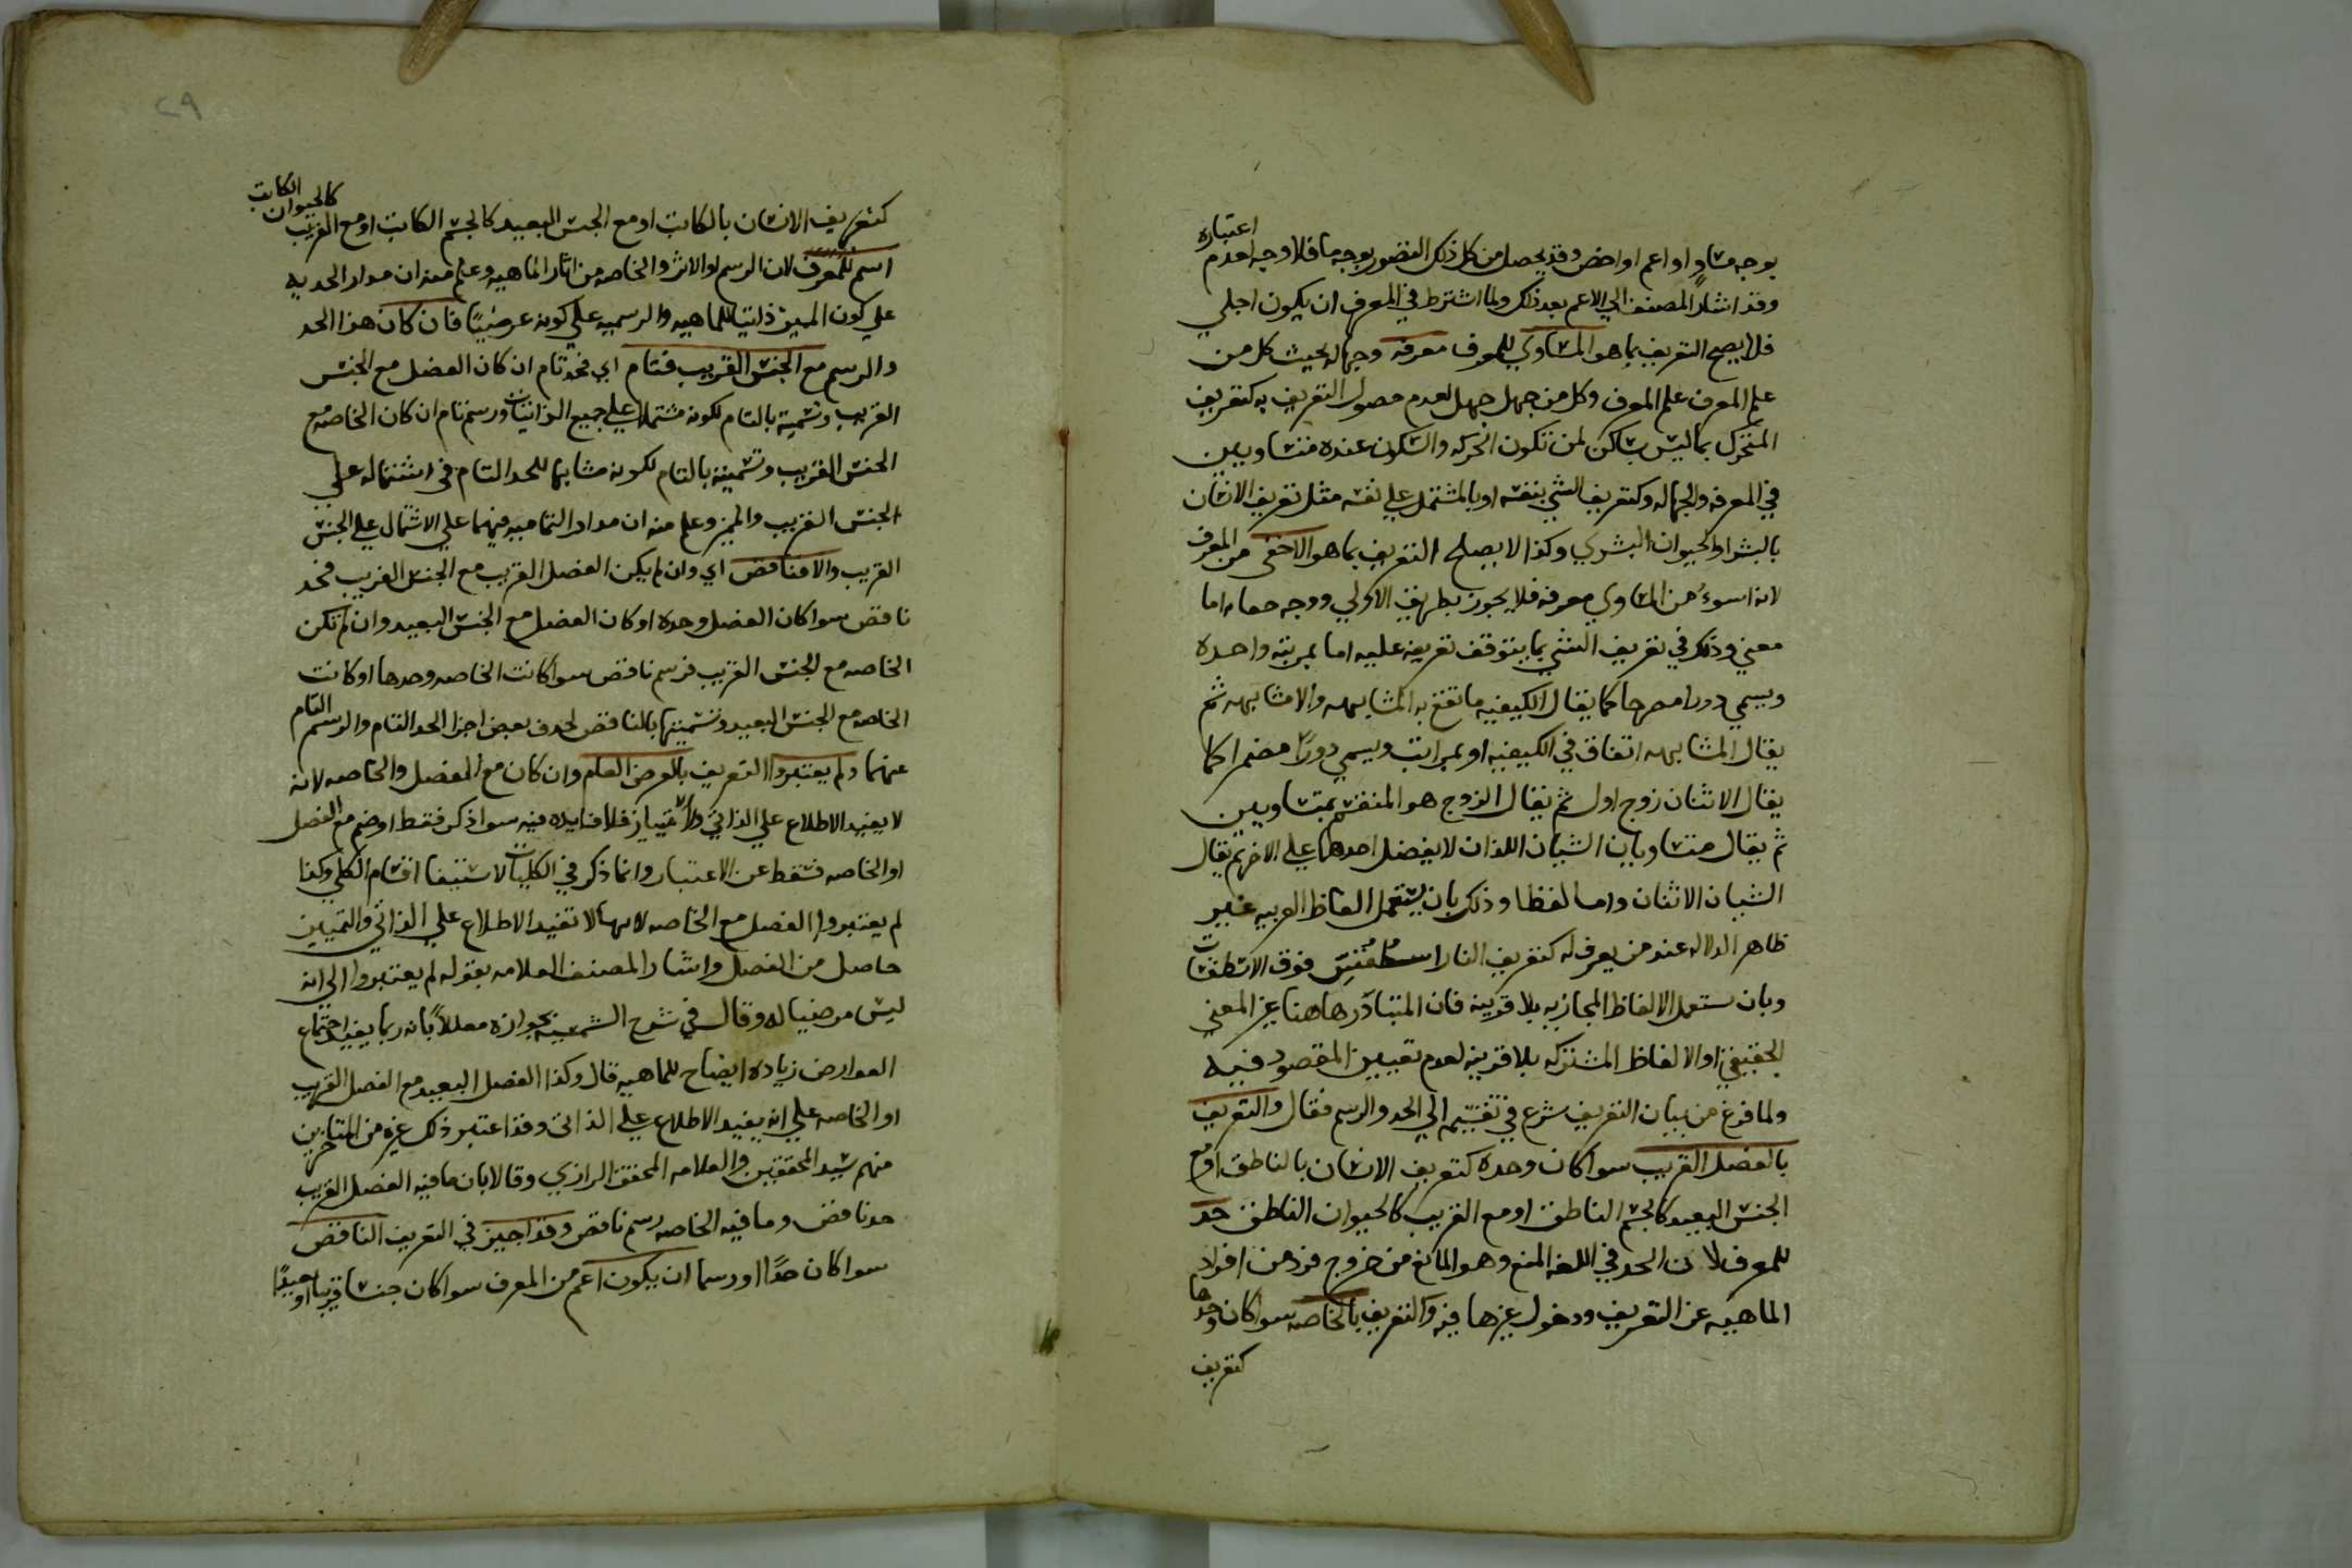 بوجه مساوٍ او اعم او اخص وقد يحصل من كل ذلك التصور بوجه ما فلا وجه لعدم اعتباره
وقد اشار المصنف الي الاعم بعد ذلك ولما اشترط في المعرف ان يكون اجلي
فلا يصح التعريف بما هو المساوي للمعرف معرفه وجهاله بحيث كل من
علم المعرف علم المعرف وكل من جهل جهل لعدم حصول التعريف به كتعريف
المتحرك بما ليس بساكن لمن تكون الحركه والسكون عنده متساويين
في المعرفه والجهاله وكتعريف الشي بنفسه او بالمشتمل علي نفسه مثل تعريف الانسان
بالبشر او الحيوان البشري وكذا لا يصلح التعريف بما هو الاخفي من المعرف
لانه اسوء من المساوي معرفه فلا يجوز بطريق الاولي ووجه اما
معني وذلك في تعريف الشي بما يتوقف تعريفه عليه اما بمرتبه واحده
ويسمي دورا مصرحا كما يقال الكيفيه ما تقع به المشابهه والامشابهه ثم
يقال المشابهه اتفاق في الكيفيه او بمراتب ويسمي دورًا مضمرا كما
يقال الاثنان زوج اول ثم يقال الزوج هو المنقسم بمتساويين
ثم يقال متساويان الشيان اللذان لا يفضل احدهما علي الاخر ثم يقال
الشيان الاثنان واما لفظا وذلك بان يستعمل الفاظ الغريبه غير
ظاهر الدلاله عند من يعرف له كتعريف النار اسطقس فوق الاسطقسات
وبان ستعمل الالفاظ المجازيه بلا قرينه فان المتبادر هاهنا غير المعني
الحقيقي او الالفاظ المشتركه بلا قرينه لعدم تعيين المقصود فيه
ولما فرغ من بيان التعريف شرع في تقسيمه الي الحد والرسم فقال والتعريف
بالفصل القريب سوا كان وحده كتعريف الانسان بالناطق او مع
الجنس البعيد كالجسم الناطق او مع القريب كالحيوان الناطق حد
للمعرف لان الحد في اللغه المنع وهو المانع من خروج فرد من افراد
الماهيه عن التعريف ودخول غيرها فيه والتعريف بالخاصه سوا كان وحدها
كتعريف
٢٩
كتعريف الانسان بالكاتب او مع الجنس البعيد كالجسم الكاتب او مع القريب كالحيوان الكاتب
اسم للمعرف لان الرسم او الاثر والخاصه من اثار الماهيه وعلم منه ان مدار الحديه
علي كون المميز ذاتيا للماهيه والرسميه علي كونه عرضيًا فان كان هذا الحد
والرسم مع الجنس القريب فتام اي فحد تام ان كان الفصل مع الجنس
القريب وتسميته بالتام لكونه مشتملا علي جميع الذاتيات ورسم تام ان كان الخاصه مع
الجنس القريب وتسميته بالتام لكونه مشابها للحد التام في اشتماله علي
الجنس القريب والمميز وعلم منه ان مدار التماميه فيهما علي الاشتمال علي الجنس
القريب والا فناقص اي وان لم يكن الفصل القريب مع الجنس القريب فحد
ناقص سوا كان الفصل وحده او كان الفصل مع الجنس البعيد وان لم تكن
الخاصه مع الجنس القريب فرسم ناقص سوا كانت الخاصه وحدها او كانت
الخاصه مع الجنس البعيد وتسميتها بالناقص لحذف بعض اجزا الحد التام والرسم التام
عنهما ولم يعتبروا التعريف بالعرض العام وان كان مع الفصل والخاصه لانه
لا يفيد الاطلاع علي الذاتي ولا الامتياز فلا فايده فيه سوا ذكر فقط او ضم مع الفصل
او الخاصه فسقط عن الاعتبار وانما ذكر في الكليات لاستيفا اقسام الكلي وكذا
لم يعتبروا الفصل مع الخاصه لانها لا تفيد الاطلاع علي الذاتي والتمييز
حاصل من الفصل واشار المصنف العلامه بقوله لم يعتبروا الي انه
ليس مرضيا له وقال في شرح الشمسيه بجوازه معللاً بانه ربما يفيد اجتماع
العوارض زياده ايضاح للماهيه قال وكذا الفصل البعيد مع الفصل القريب
او الخاصه علي انه يفيد الاطلاع علي الذاتي وقد اعتبر ذلك غيره من المتاخرين
منهم سيد المحققين والعلامه المحقق الرازي وقالا بان ما فيه الفصل القريب
حد ناقص وما فيه الخاصه رسم ناقص وقد اجيز في التعريف الناقص
سوا كان حدًا او رسما ان يكون اعم من المعرف سوا كان جنسا قريبا او بعيدًا